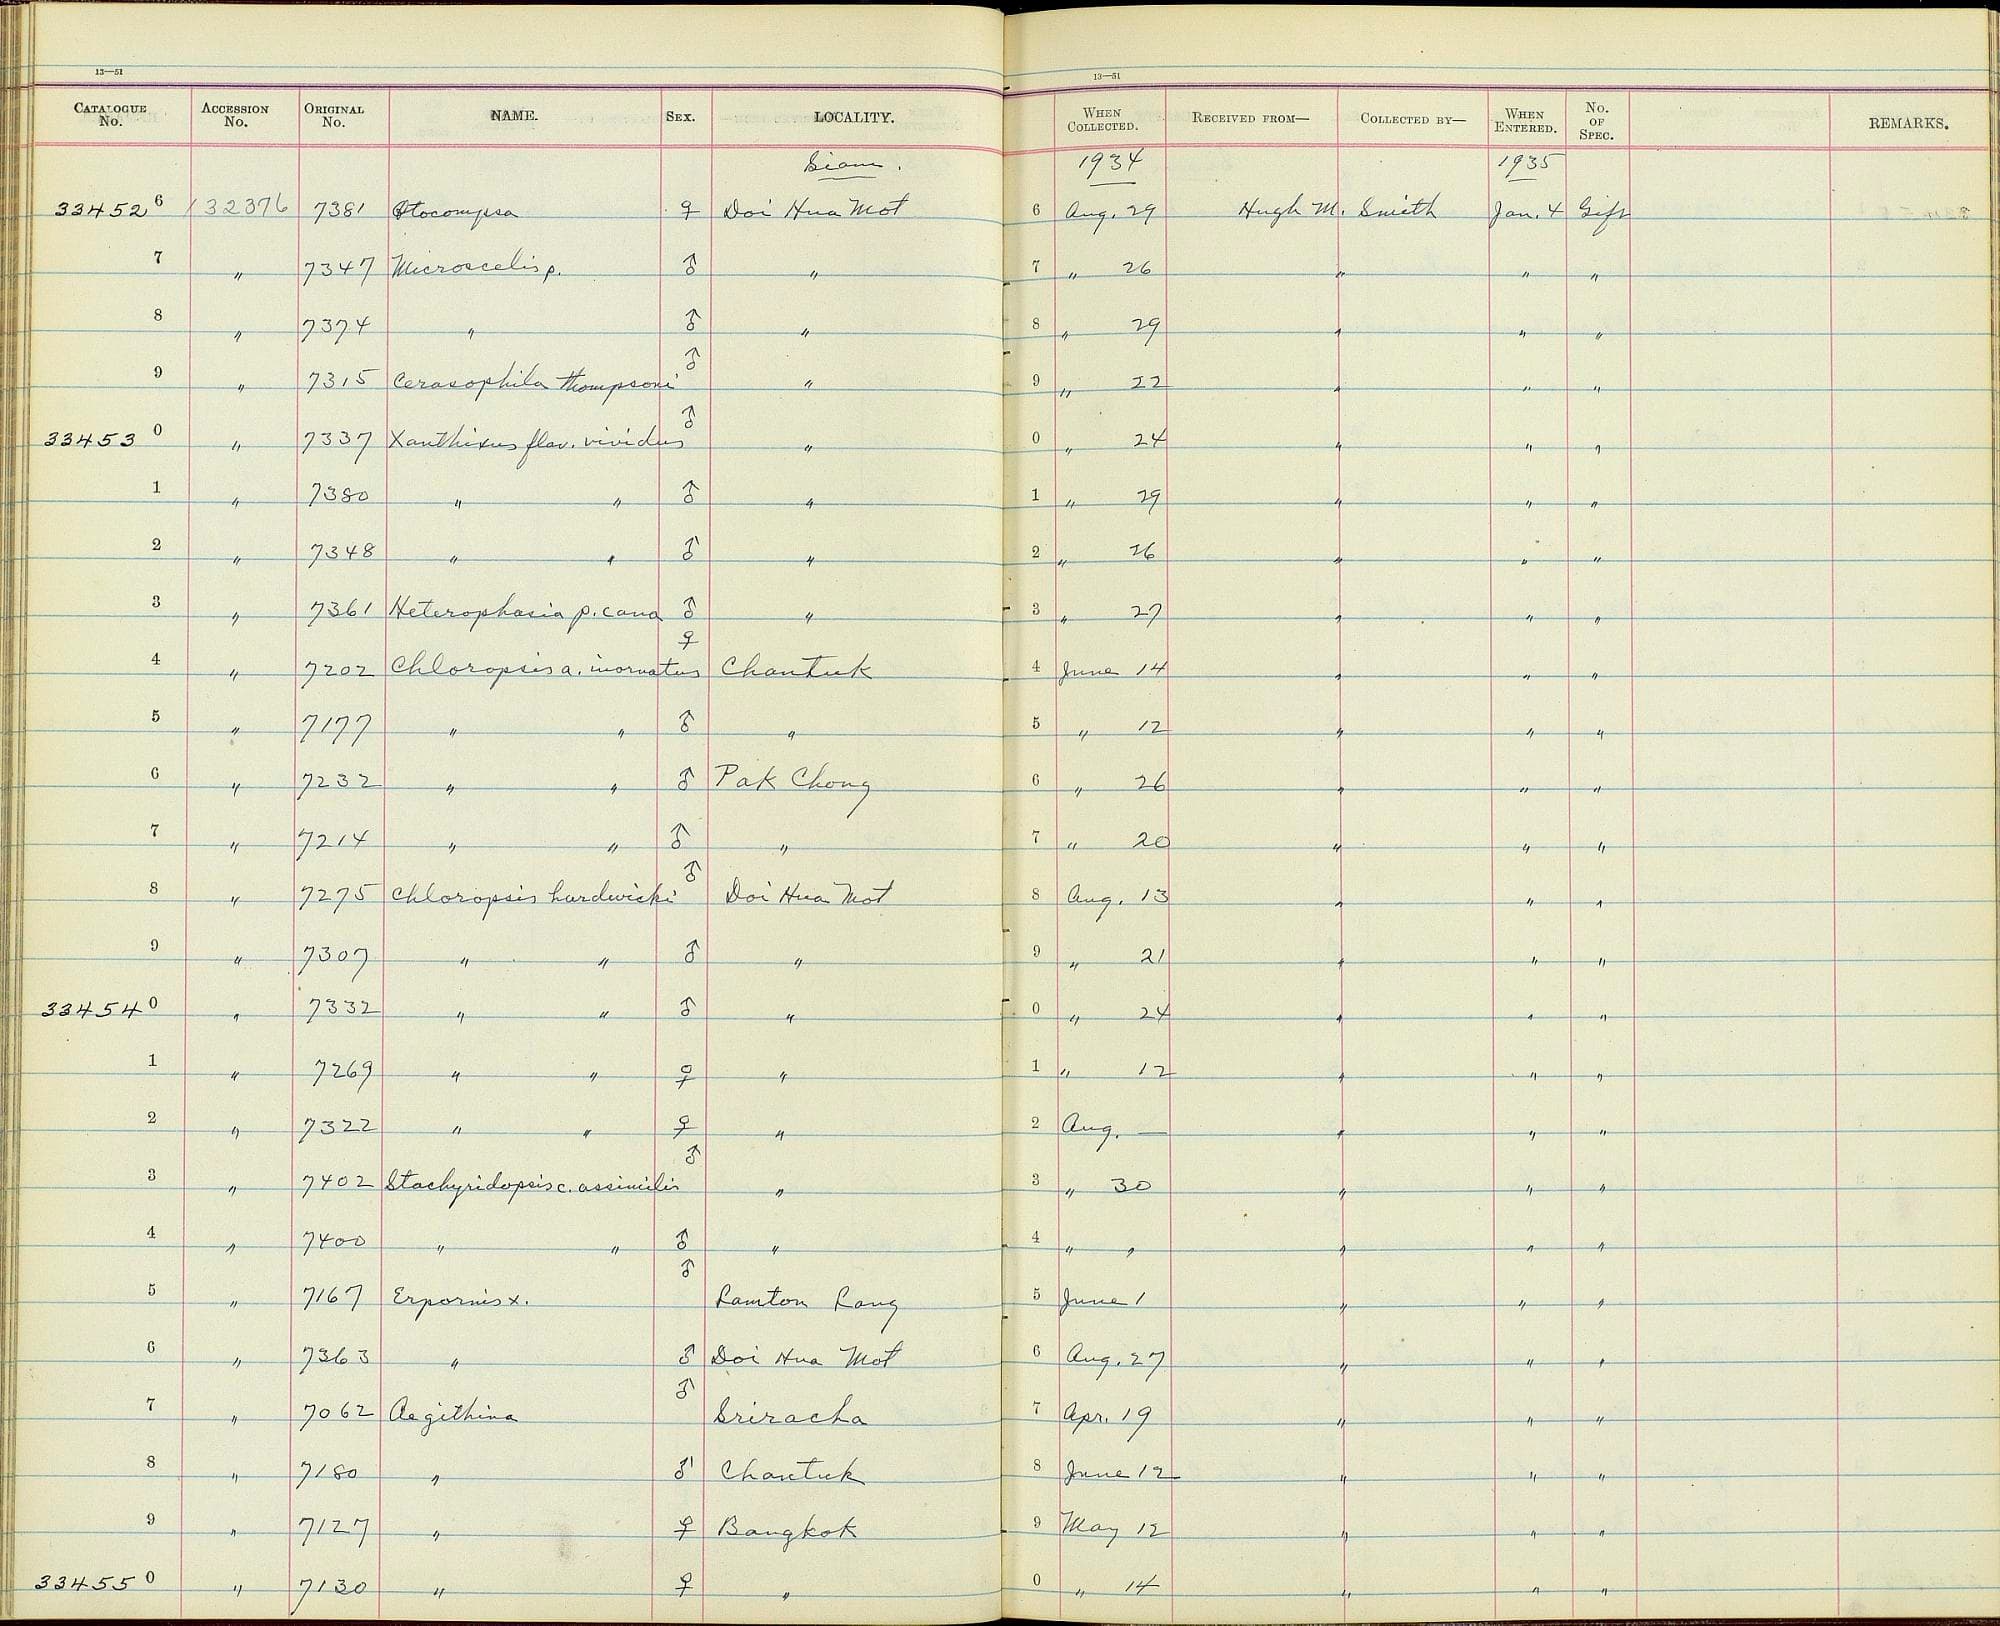 13—51 13—51
CATALOGUE No. ACCESSION No. ORIGINAL No. NAME. SEX. LOCALITY. WHEN COLLECTED. RECEIVED FROM— COLLECTED BY— WHEN ENTERED. No. OF SPEC. REMARKS.
Siam. 1934 1935
33452 6 132376 7381 Otocompsa ♀ Doi Hua Mot 6 Aug. 29 Hugh M. Smith Jan. 4 Gift
7 " 7347 Microscelis p. ♂ " 7 " 26 " " "
8 " 7374 " ♂ " 8 " 29 " " "
9 " 7315 Cerasophila thompsoni ♂ " 9 " 22 " " "
33453 0 " 7337 Xanthixus flav. vividus ♂ " 0 " 24 " " "
1 " 7380 " " ♂ " 1 " 29 " " "
2 " 7348 " " ♂ " 2 " 26 " " "
3 " 7361 Heterophasia p. cana ♂ " 3 " 27 " " "
4 " 7202 Chloropsis a. inornatus ♀ Chantuk 4 June 14 " " "
5 " 7177 " " ♂ " 5 " 12 " " "
6 " 7232 " " ♂ Pak Chong 6 " 26 " " "
7 " 7214 " " ♂ " 7 " 20 " " "
8 " 7275 Chloropsis hardwicki ♂ Doi Hua Mot 8 Aug. 13 " " "
9 " 7307 " " ♂ " 9 " 21 " " "
33454 0 " 7332 " " ♂ " 0 " 24 " " "
1 " 7269 " " ♀ " 1 " 12 " " "
2 " 7322 " " ♀ " 2 Aug. — " " "
3 " 7402 Stachyridopsis c. assimilis ♂ " 3 " 30 " " "
4 " 7400 " " ♂ " 4 " " " " "
5 " 7167 Erpornis x. ♂ 5 June 1 " " "
6 " 7363 " ♂ Doi Hua Mot 6 Aug. 27 " " "
7 " 7062 Aegithina ♂ Sriracha 7 Apr. 19 " " "
8 " 7180 " ♂ Chantuk 8 June 12 " " "
9 " 7127 " ♀ Bangkok 9 May 12 " " "
33455 0 " 7130 " ♀ " 0 " 14 " " "